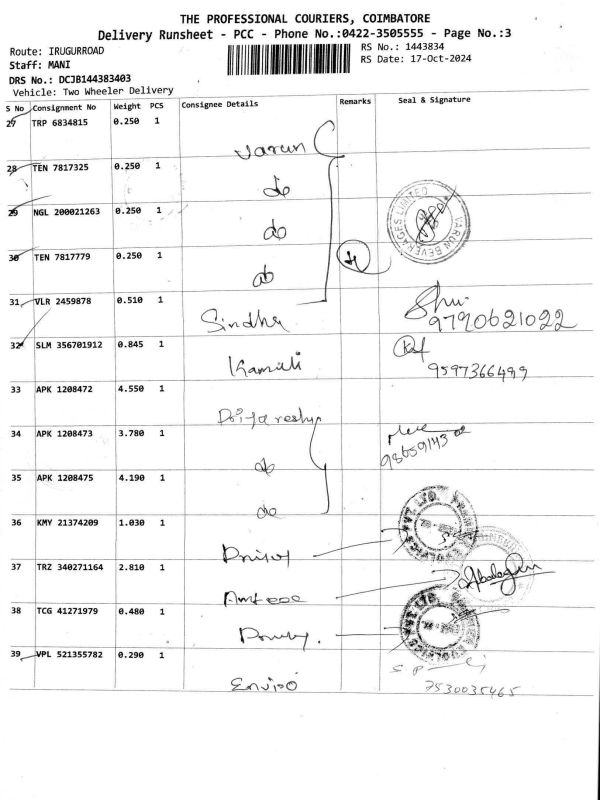 THE PROFESSIONAL COURIERS, COIMBATORE
Delivery Runsheet - PCC - Phone No.:0422-3505555 - Page No.:3
Route: IRUGURROAD
RS No.: 1443834
Staff: MANI
RS Date: 17-Oct-2024
DRS No.: DCJB144383403
Vehicle: Two Wheeler Delivery
S No Consignment No Weight PCS Consignee Details Remarks Seal & Signature
27 TRP 6834815 0.250 1
Varun
28 TEN 7817325 0.250 1
do
29 NGL 200021263 0.250 1
do
VARUN BEVERAGES LIMITED
30 TEN 7817779 0.250 1
do
4
31 VLR 2459878 0.510 1
Sindhu
9790621022
32 SLM 356701912 0.845 1
Kamali
9597366499
33 APK 1208472 4.550 1
34 APK 1208473 3.780 1
do
35 APK 1208475 4.190 1
do
36 KMY 21374209 1.030 1
37 TRZ 340271164 2.810 1
38 TCG 41271979 0.480 1
39 VPL 521355782 0.290 1
Enviro
7530035465